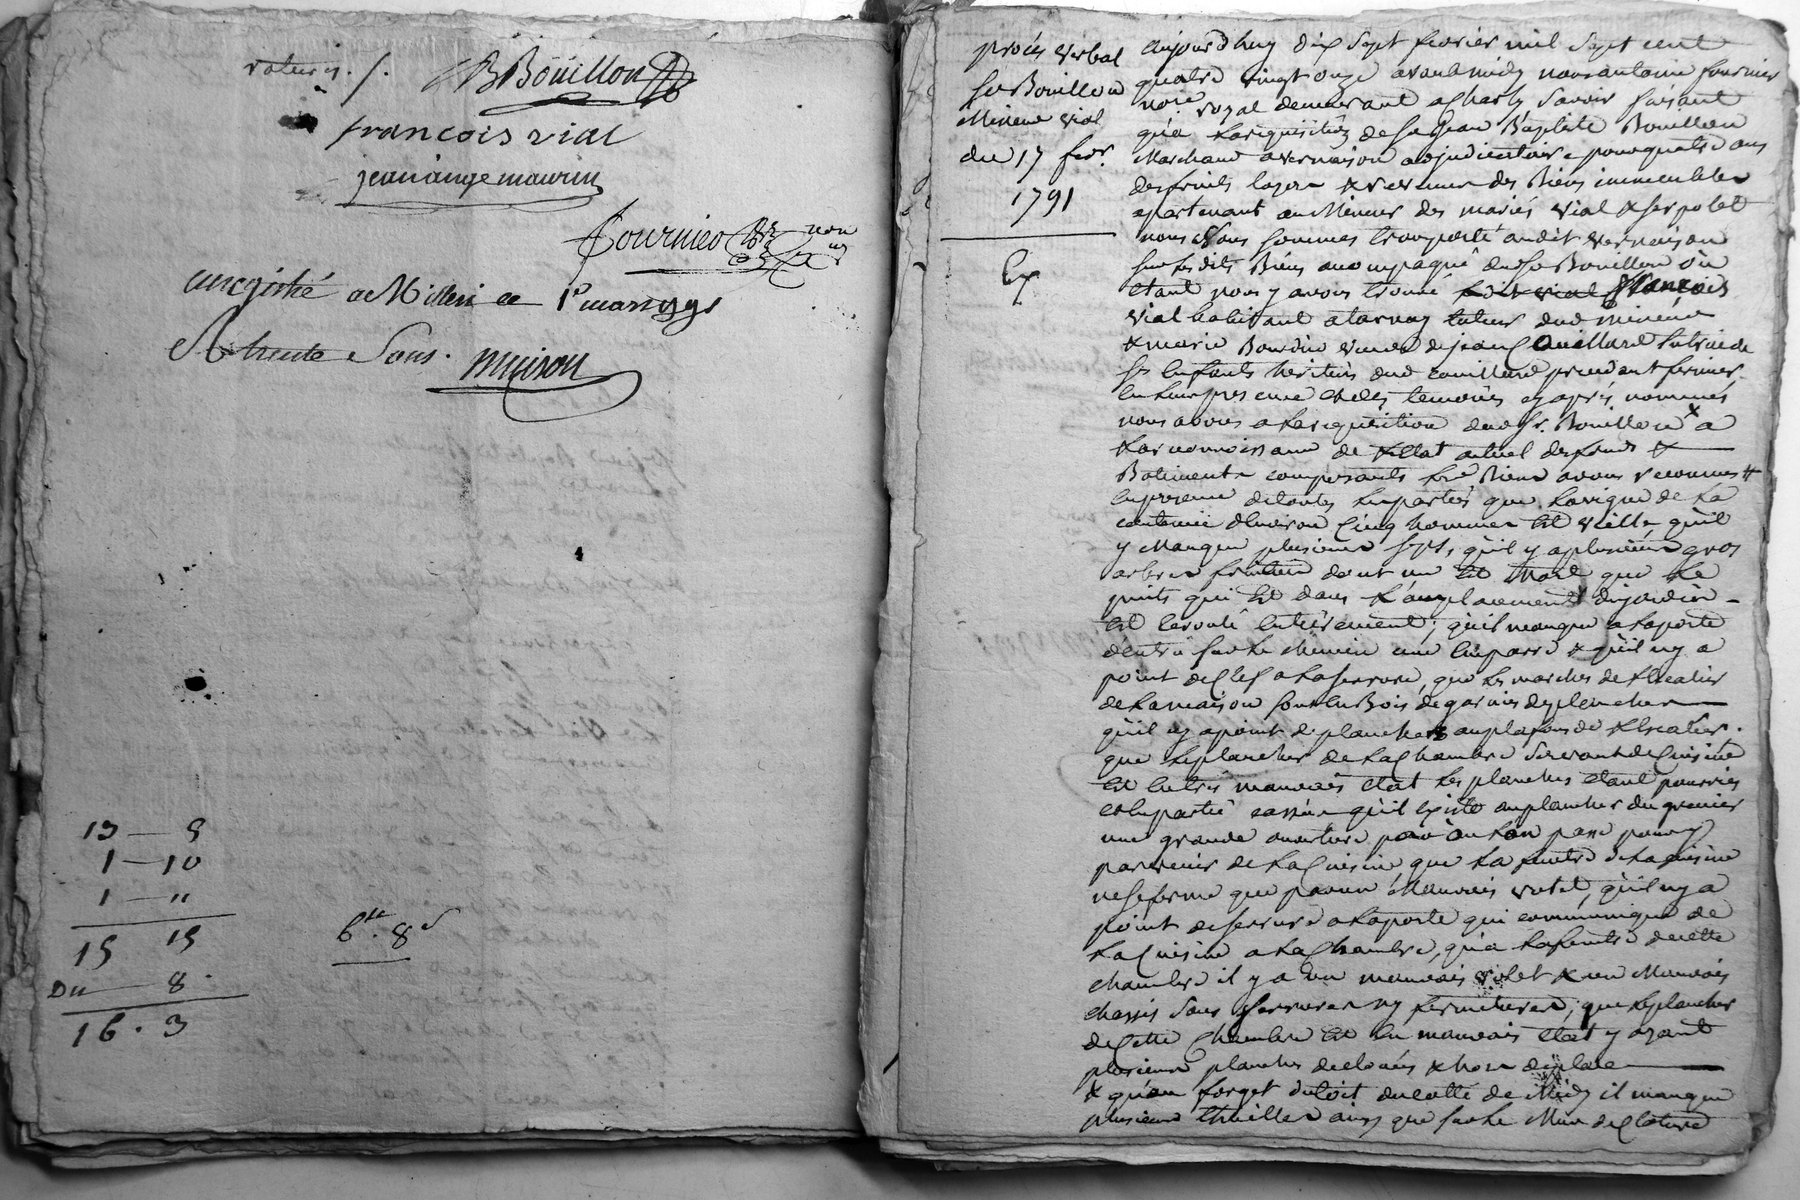 raturés ./.
JB Boüillon
francois vial
jean ange maurin
fournier nore
enregistré a Millery le 1er mars 1791
R trente sous. muison
15 — 5
1 — 10
1 — "
15 15
Du — 8.
16 . 3
6tt. 8s
procés verbal
sr Bouillon
Mineur vial
du 17 fevr.
1791
Ex
aujourd'huy dix sept fevrier mil sept cent
quatre vingt onze avant midy nous antoine fournier
nore royal demeurant a Charly savoir faisant
qu'a la requisition de sr Jean Baptiste Bouillon
Marchand a vernaison adjudicataire pour quatre ans
des fruits loyers & revenus des Biens immeubles
apartenant au Mineur des mariés vial & serpolet
nous Nous sommes transporté audit vernaison
sur lesdits Biens accompagné dudt sr Bouillon où
etant nous y avons trouvé françois
vial habitant a tarnay tuteur dud mineur
& marie Bourdin veuve de jean Couillard tutrice de
ses Enfants heritiers dud couillard précédent fermier
En leur presence & celles temoins cy après nommés
nous avons a la requisition dud sr. Bouillon x a
la reconnoissance de l'Etat actuel des fonds &
Batiments composants led Biens avons reconnus #
En presence de toutes les parties que la vigne de la
contenüe d'Environ Cinq hommes Est vieille qu'il
y Manque plusieurs seps, qu'il y a plusieurs gros
arbres fruitiers dont un Est Mort que le
puits qui Est dans l'emplacement du jardin
Est ecroulé Entierement; qu'il manque a la porte
d'entrée sur le chemin une Emparre & qu'il ny a
point de Clef a la serrure, que les marches de l'Escalier
de la maison sont En Bois degarnies de plancher
qu'il ny a point de planchers au plafond de l'Escalier.
que le plancher de la Chambre servant de Cuisine
Est En très mauvais Etat les planches etant pourries
& En partie cassées qu'il Existe au plancher du grenier
une grande ouverture par ou L'on passe pour y
parvenir de la Cuisine, que la fenetre de la cuisine
ne se ferme que par un Mauvais volet, qu'il ny a
point de serrure a la porte qui communique de
la Cuisine a la Chambre, qu'a la fenetre de cette
chambre il y a Un mauvais volet & un Mauvais
chassis sans serrures ny fermetures; que le plancher
de Cette Chambre Est En mauvais Etat y ayant
plusieurs planches declouées & hors de place
& qu'au forget du toit du cotté de Midy il manque
plusieurs thuilles ainsy que sur le Mur de Cloture